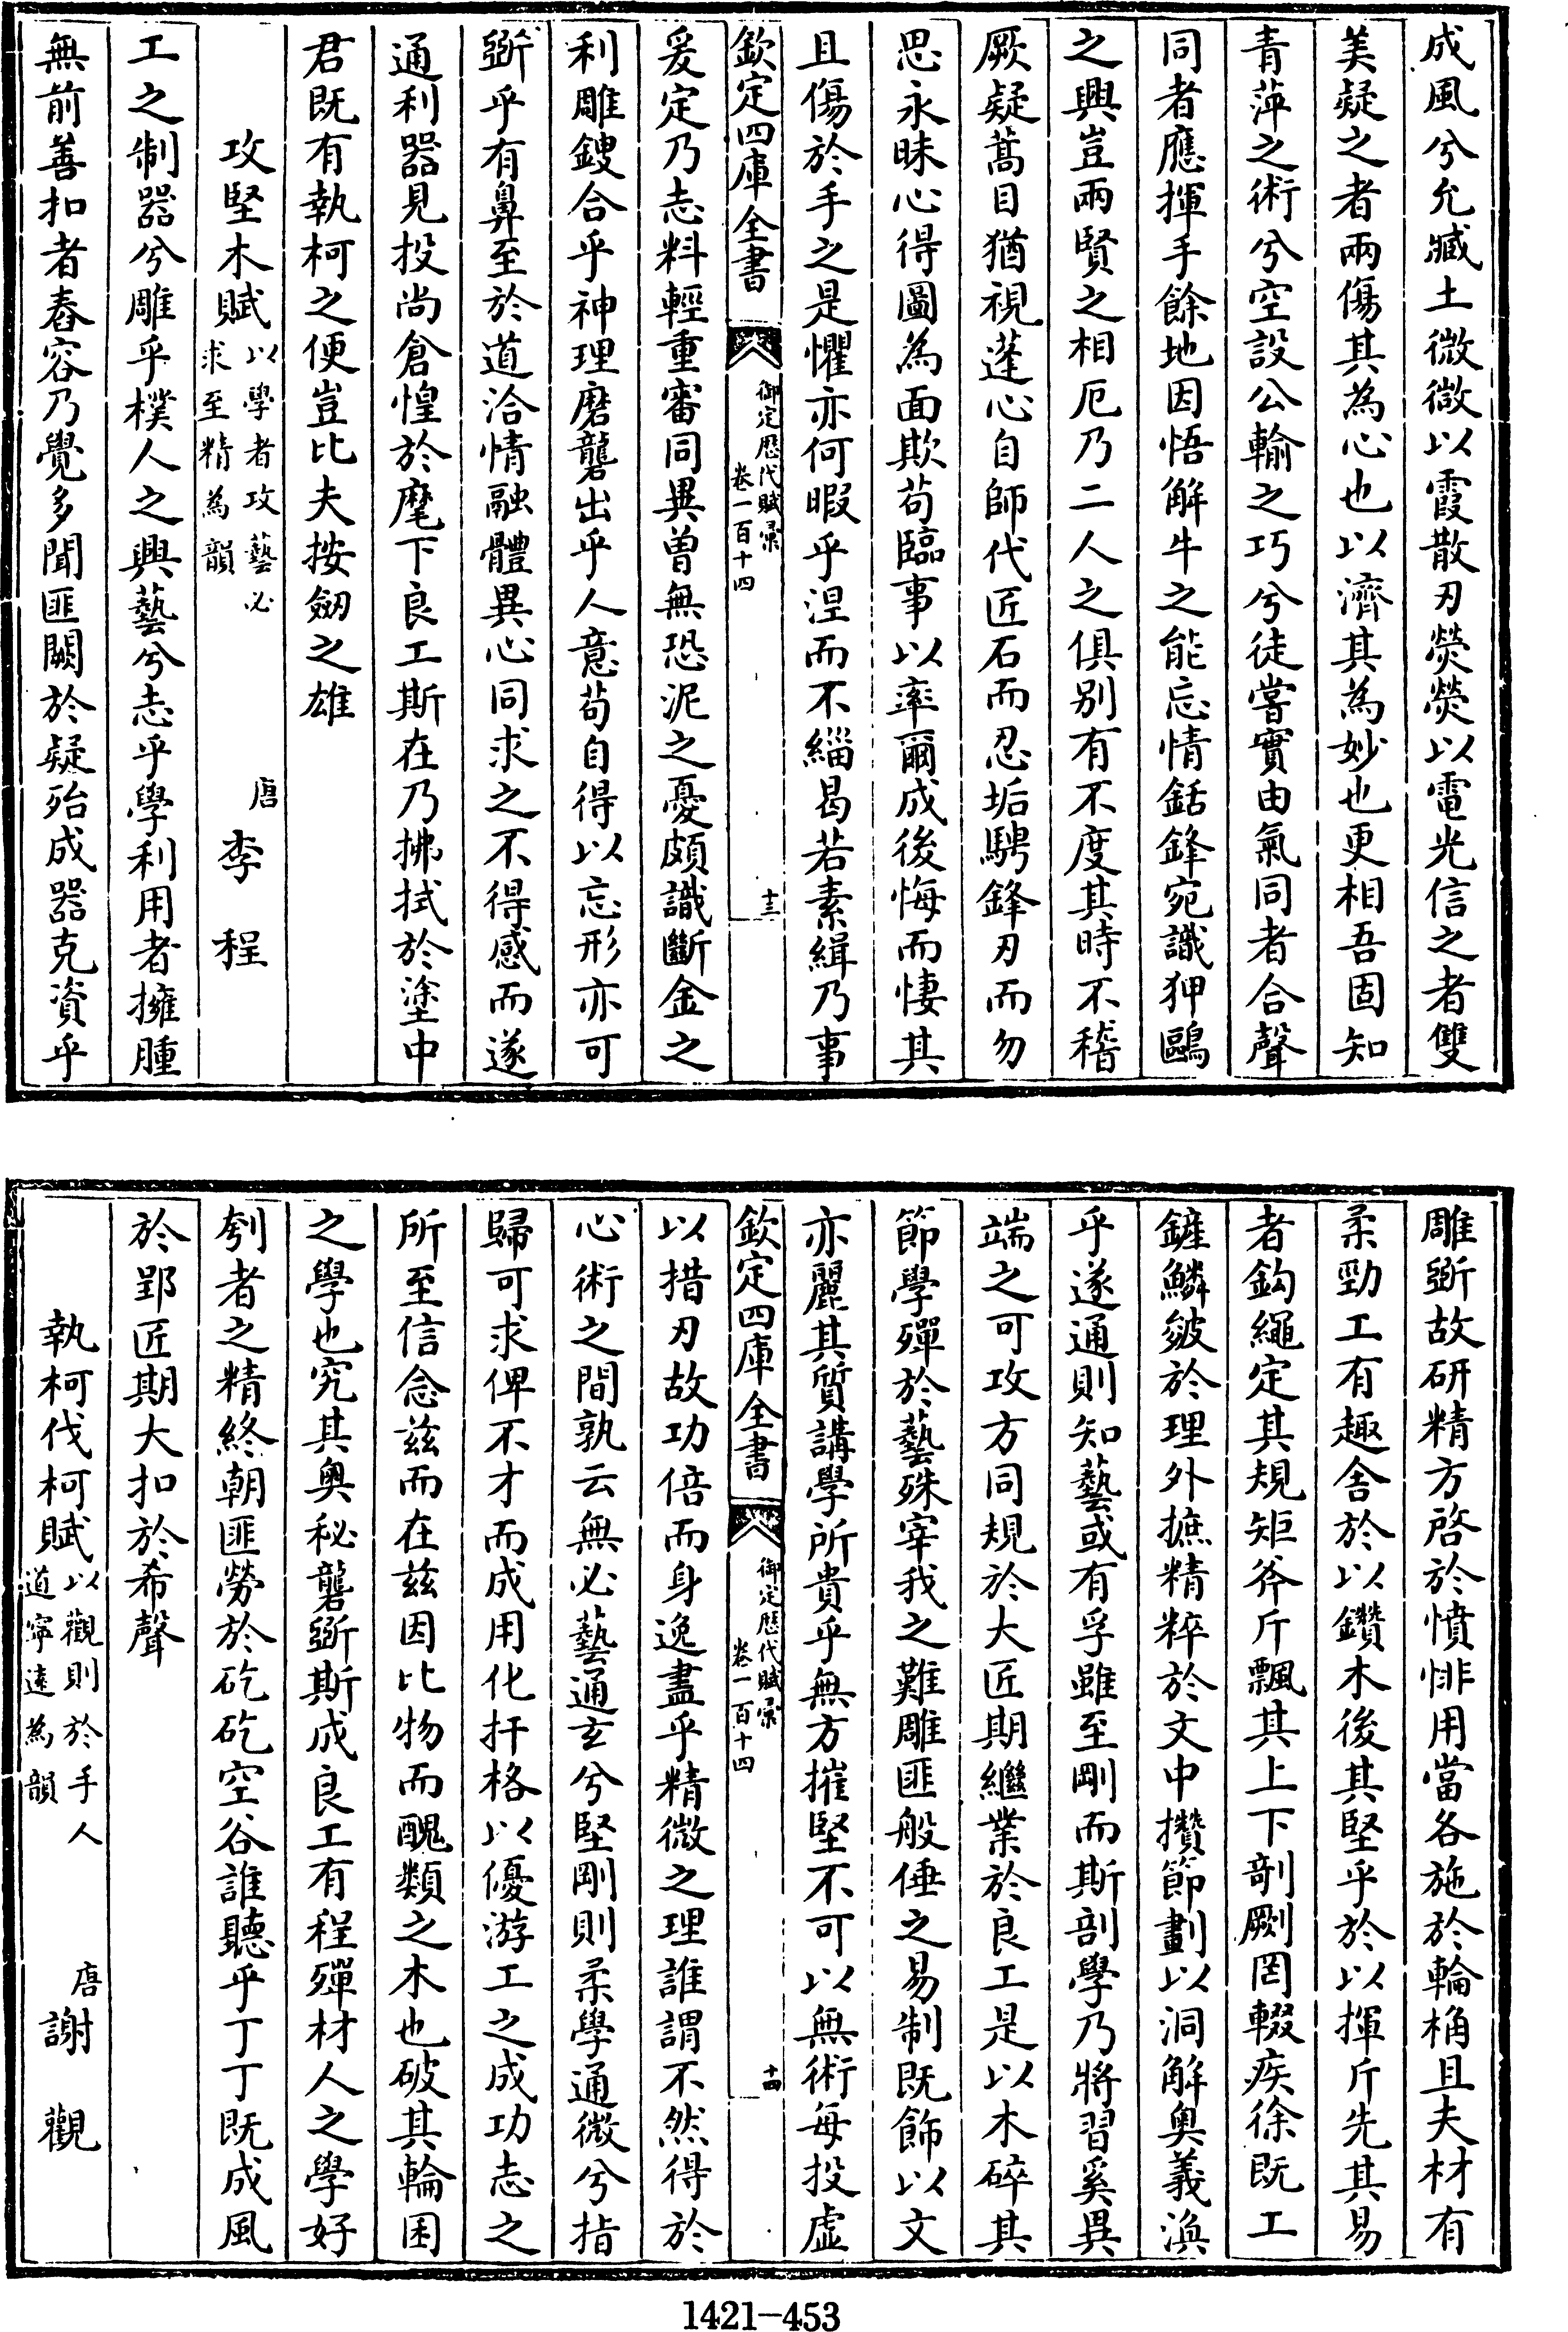 成風兮允臧土微微以霞散刃熒熒以電光信之者雙
美疑之者兩傷其為心也以濟其為妙也更相吾固知
青萍之術兮空設公輸之巧兮徒嘗實由氣同者合聲
同者應揮手餘地因悟解牛之能忘情銛鋒宛識狎鷗
之興豈兩賢之相厄乃二人之俱別有不度其時不稽
厥疑蒿目猶視蓬心自師代匠石而忍垢騁鋒刃而勿
思永昧心得圖為面欺苟臨事以率爾成後悔而悽其
且傷於手之是懼亦何暇乎涅而不緇曷若素緝乃事
欽定四庫全書
御定歷代賦彙
卷一百十四
十三
爰定乃志料輕重審同異曾無恐泥之憂頗識斷金之
利雕鎪合乎神理磨礱出乎人意苟自得以忘形亦可
斵乎有鼻至於道洽情融體異心同求之不得感而遂
通利器見投尚倉惶於麾下良工斯在乃拂拭於塗中
君既有執柯之便豈比夫按劒之雄
攻堅木賦以學者攻藝必求至精為韻
唐李程
工之制器兮雕乎樸人之興藝兮志乎學利用者擁腫
無前善扣者舂容乃覺多聞匪闕於疑殆成器克資乎
雕斵故研精方啓於憤悱用當各施於輪桷且夫材有
柔勁工有趣舍於以鑽木後其堅乎於以揮斤先其易
者鈎繩定其規矩斧斤飄其上下剞劂罔輟疾徐既工
鏟鱗皴於理外摭精粹於文中攢節劃以洞解奧義渙
乎遂通則知藝或有孚雖至剛而斯剖學乃將習奚異
端之可攻方同規於大匠期繼業於良工是以木碎其
節學殫於藝殊宰我之難雕匪般倕之易制既飾以文
亦麗其質講學所貴乎無方摧堅不可以無術每投虛
欽定四庫全書
御定歷代賦彙
卷一百十四
十四
以措刃故功倍而身逸盡乎精微之理誰謂不然得於
心術之間孰云無必藝通玄兮堅剛則柔學通微兮指
歸可求俾不才而成用化扞格以優游工之成功志之
所至信念茲而在茲因比物而醜類之木也破其輪囷
之學也究其奧秘礱斵斯成良工有程殫材人之學好
刳者之精終朝匪勞於矻矻空谷誰聽乎丁丁既成風
於郢匠期大扣於希聲
執柯伐柯賦以觀則於手人道寧遠為韻
唐謝觀
1421-453